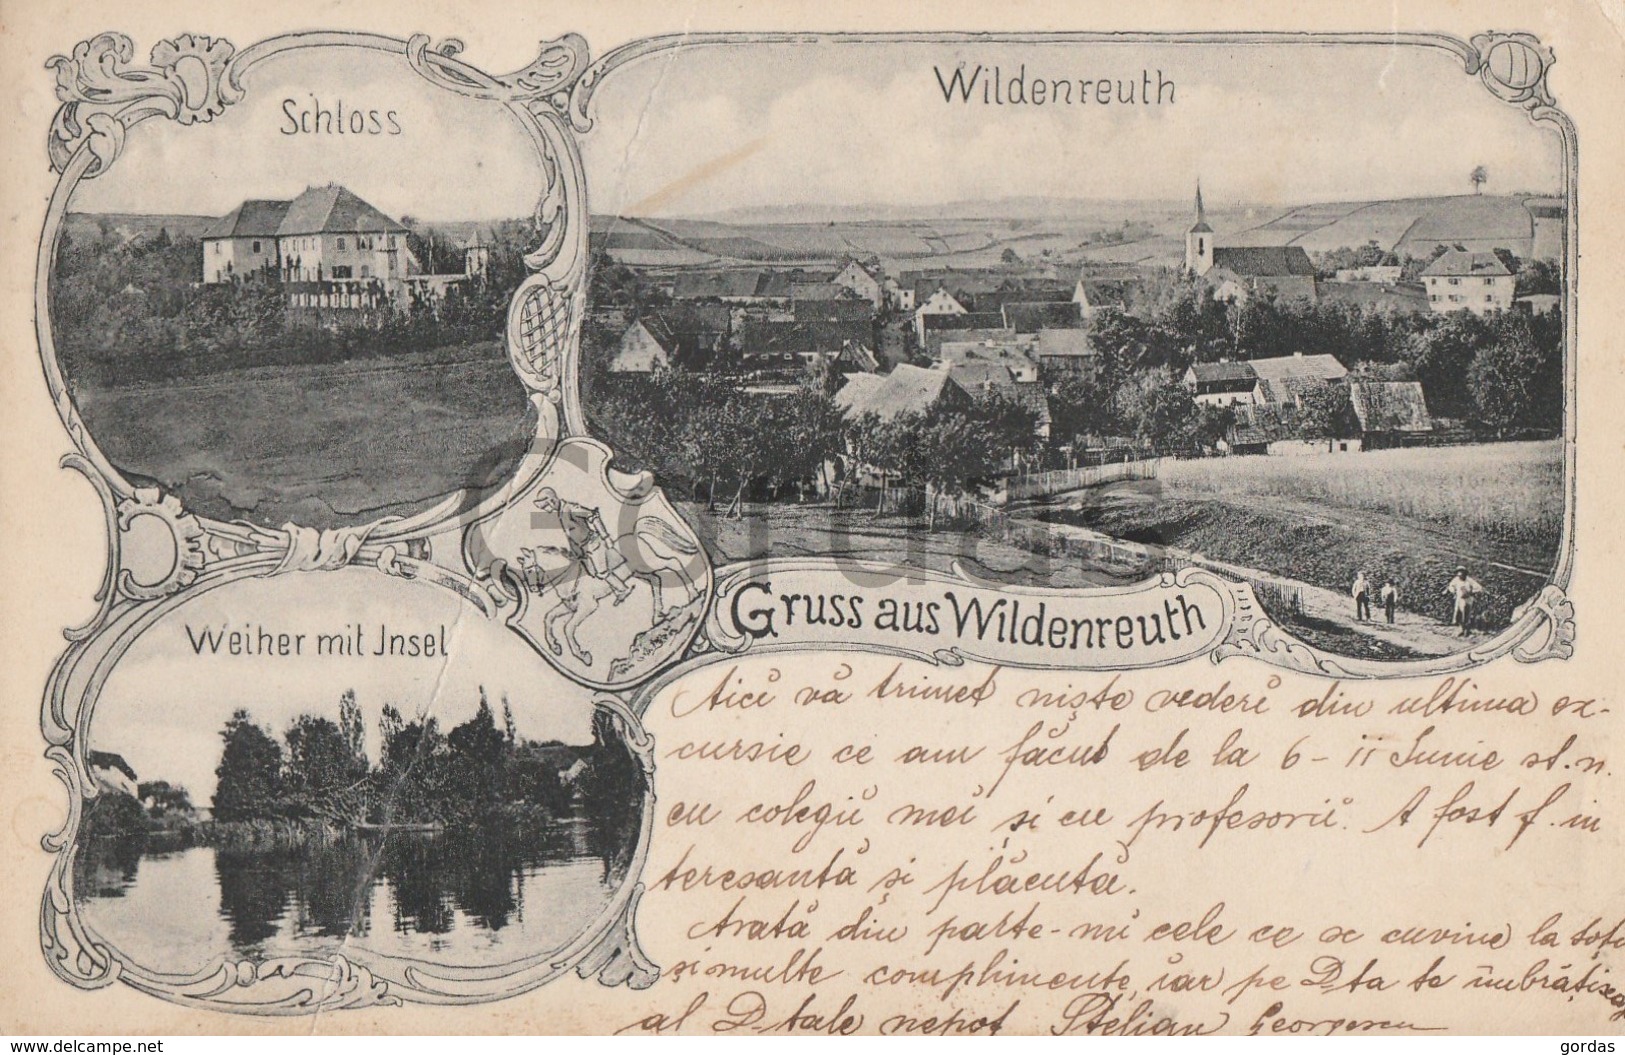 Schloss
Wildenreuth
Weiher mit Insel
Gruss aus Wildenreuth
Gordas
Aici vă trimet niște vederi din ultima ex-
cursie ce am făcut de la 6 - 11 Iunie st. n.
cu colegii mei și cu profesorii. A fost f. in
teresantă și plăcută.
Arată din parte-mi cele ce se cuvine la toți
și multe complimente, iar pe Dta te îmbrățișează
al Dtale nepot Stelian Georgescu
delcampe.com
gordas